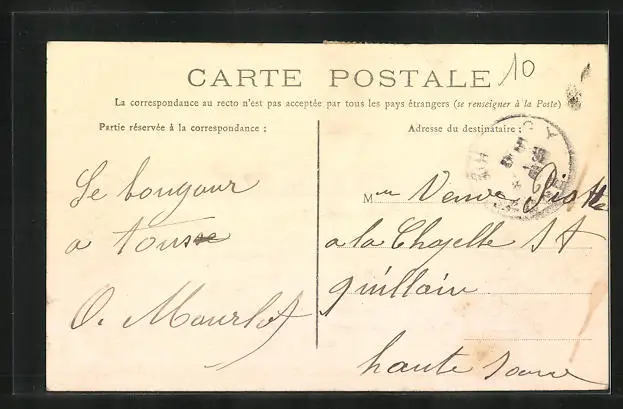 10
CARTE POSTALE
La correspondance au recto n'est pas acceptée par tous les pays étrangers (se renseigner à la Poste)
Partie réservée à la correspondance :
Le bongour
a tous
O. Mourlot
Adresse du destinataire :
Mme Veuve
a la Chapelle St
quillain
haute Saone